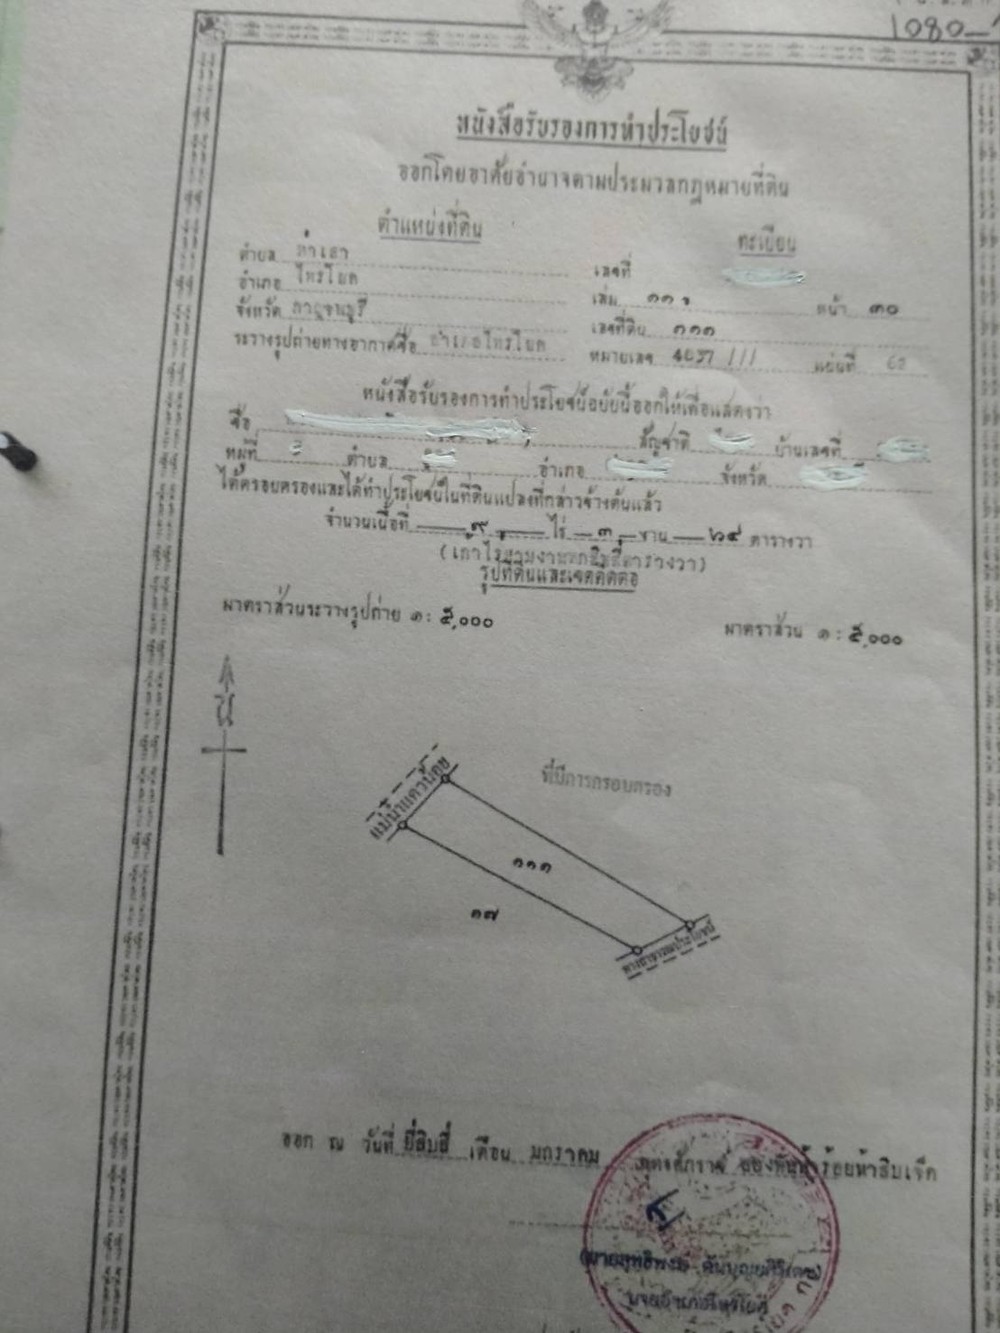 1080-
หนังสือรับรองการทำประโยชน์
ออกโดยอาศัยอำนาจตามประมวลกฎหมายที่ดิน
ตำแหน่งที่ดิน
ทะเบียน
ตำบล ท่าเสา
เลขที่
อำเภอ ไทรโยค
เล่ม หน้า ๓๐
จังหวัด กาญจนบุรี
เลขที่ดิน ๑๑๑
ระวางรูปถ่ายทางอากาศชื่อ อำเภอไทรโยค
หมายเลข 4837 /// แผ่นที่ 62
หนังสือรับรองการทำประโยชน์ฉบับนี้ออกให้เพื่อแสดงว่า
ชื่อ สัญชาติ บ้านเลขที่
หมู่ที่ ตำบล อำเภอ จังหวัด
ได้ครอบครองและได้ทำประโยชน์ในที่ดินแปลงที่กล่าวข้างต้นแล้ว
จำนวนเนื้อที่ ๙ ไร่ ๓ งาน ๖๔ ตารางวา
(เก้าไร่สามงานหกสิบสี่ตารางวา)
รูปที่ดินและเขตติดต่อ
มาตราส่วนระวางรูปถ่าย ๑: ๕,๐๐๐
มาตราส่วน ๑: ๕,๐๐๐
น
แม่น้ำแควน้อย
ที่มีการครอบครอง
๑๑๑
๓๗
ทางสาธารณประโยชน์
ออก ณ วันที่ ยี่สิบสี่ เดือน มกราคม พุทธศักราช สองพันห้าร้อยห้าสิบเจ็ด
นายอำเภอไทรโยค